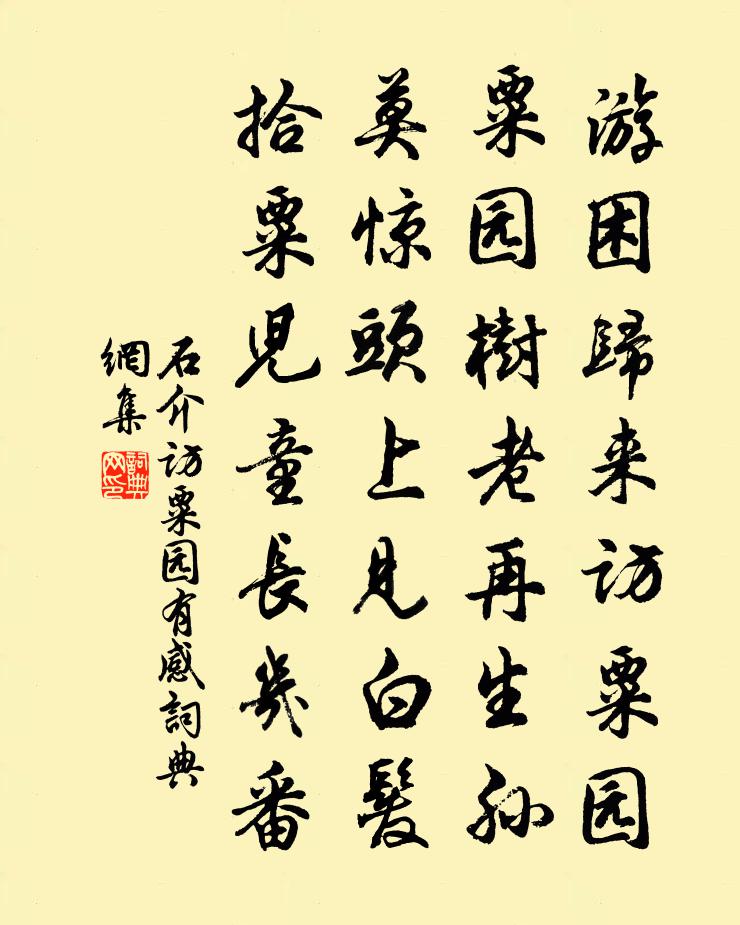 游困歸来访粟园
粟园樹老再生孙
莫惊頭上见白髮
拾粟兒童長幾番
石介访粟园有感詞典
網集
詞典
网印